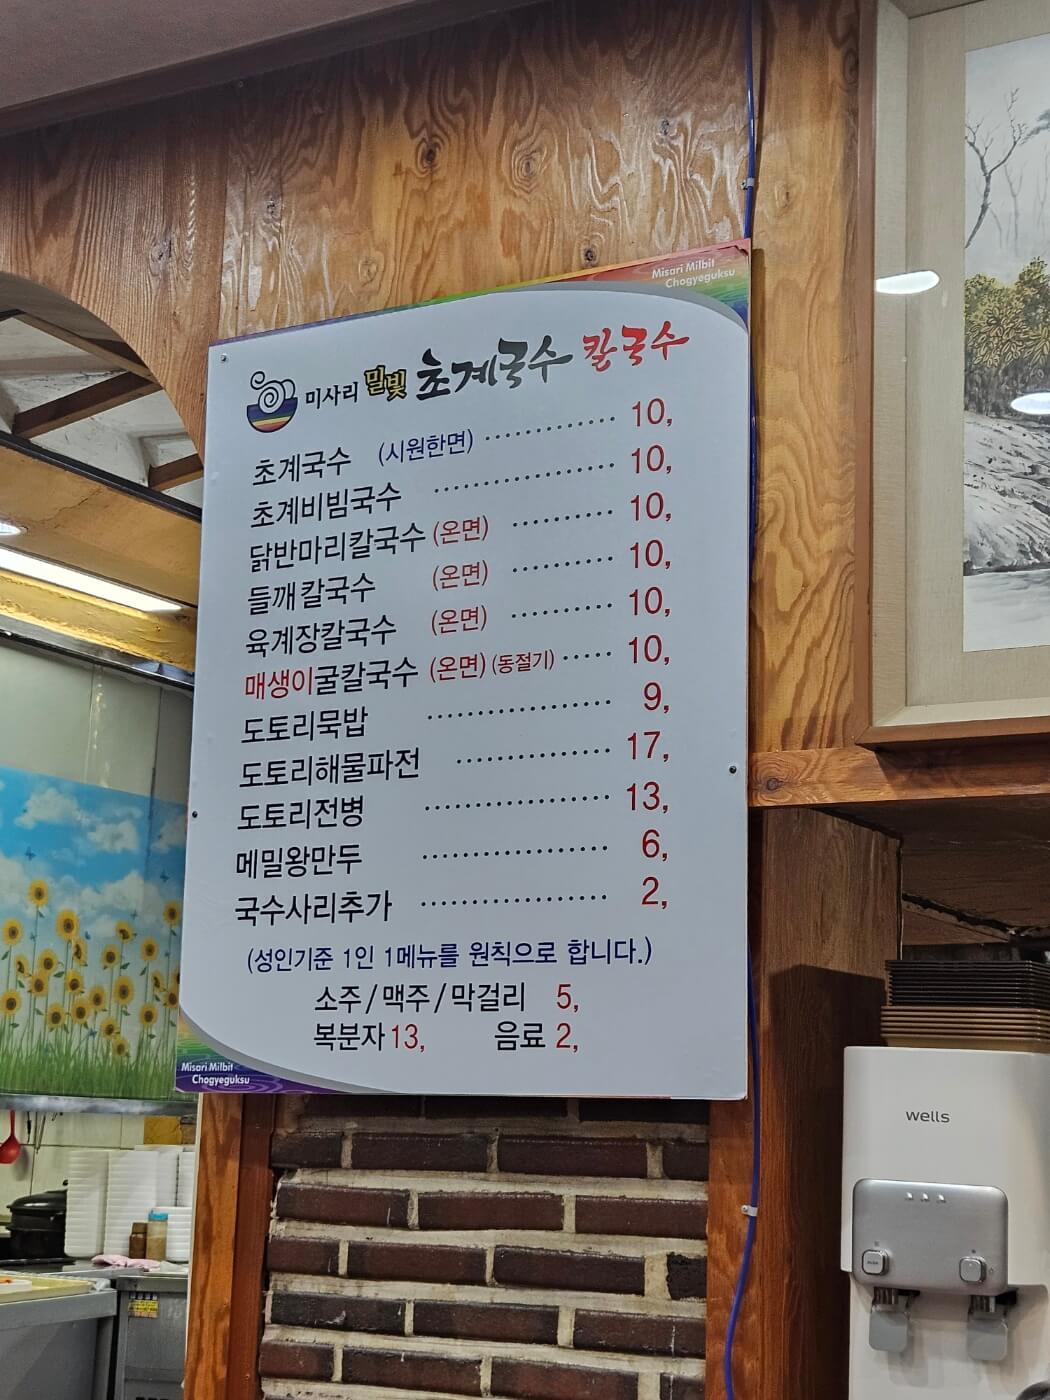 Misari Milbit
Chogyeguksu
미사리 밀빛 초계국수 칼국수
초계국수 (시원한면) ············· 10,
초계비빔국수 ·················· 10,
닭반마리칼국수 (온면) ·········· 10,
들깨칼국수 (온면) ·········· 10,
육계장칼국수 (온면) ·········· 10,
매생이굴칼국수 (온면) (동절기) ····· 10,
도토리묵밥 ·················· 9,
도토리해물파전 ··············· 17,
도토리전병 ·················· 13,
메밀왕만두 ·················· 6,
국수사리추가 ·················· 2,
(성인기준 1인 1메뉴를 원칙으로 합니다.)
소주/맥주/막걸리 5,
복분자 13, 음료 2,
Misari Milbit
Chogyeguksu
wells